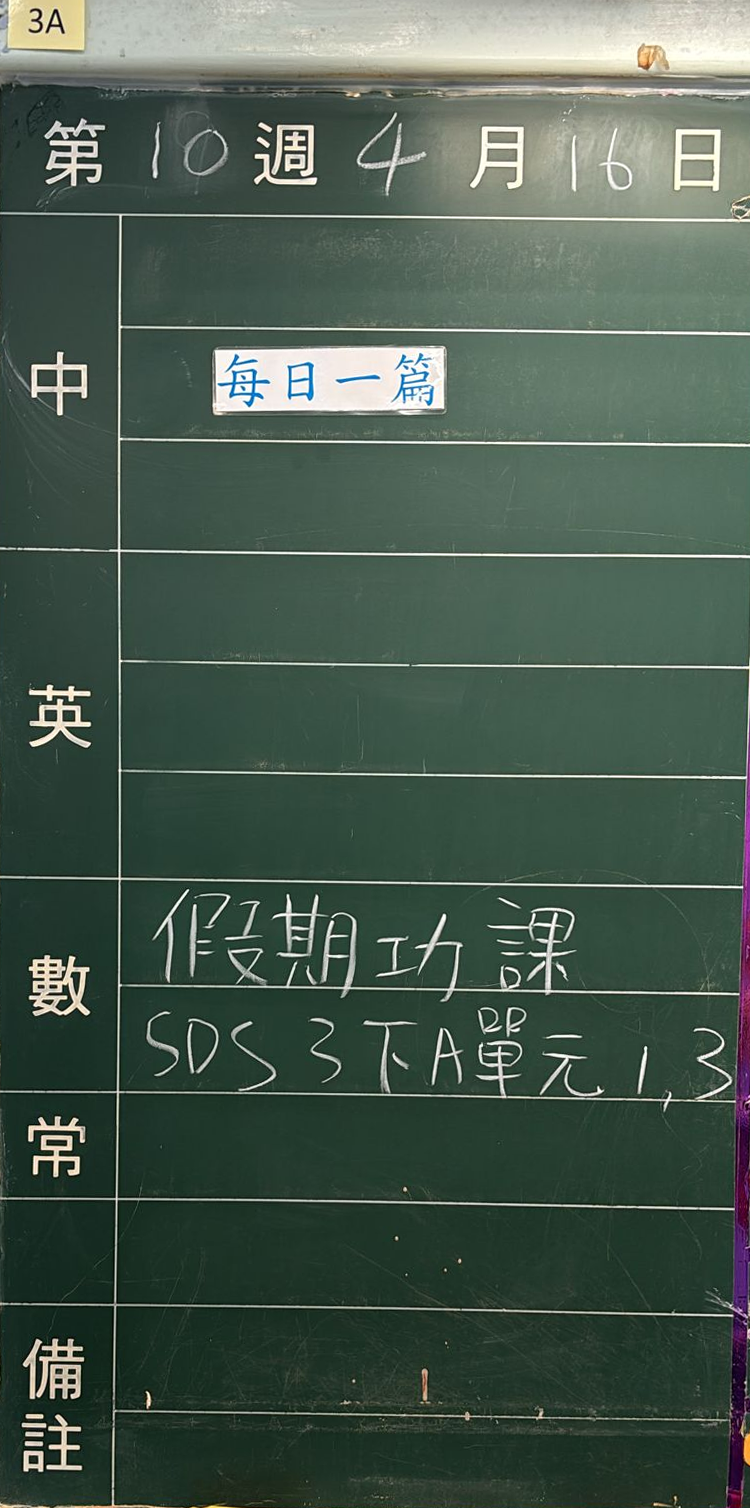 3A
第10週4月16日
中
每日一篇
英
數
假期功課
SDS 3下A單元1,3
常
備註